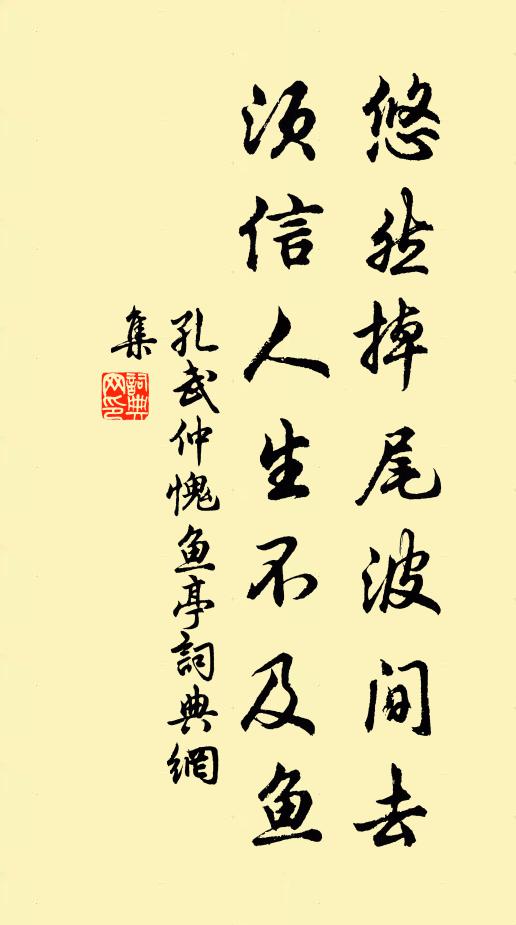 悠然掉尾波间去
须信人生不及鱼
孔武仲愧鱼亭詞典網
集
詞典
网印